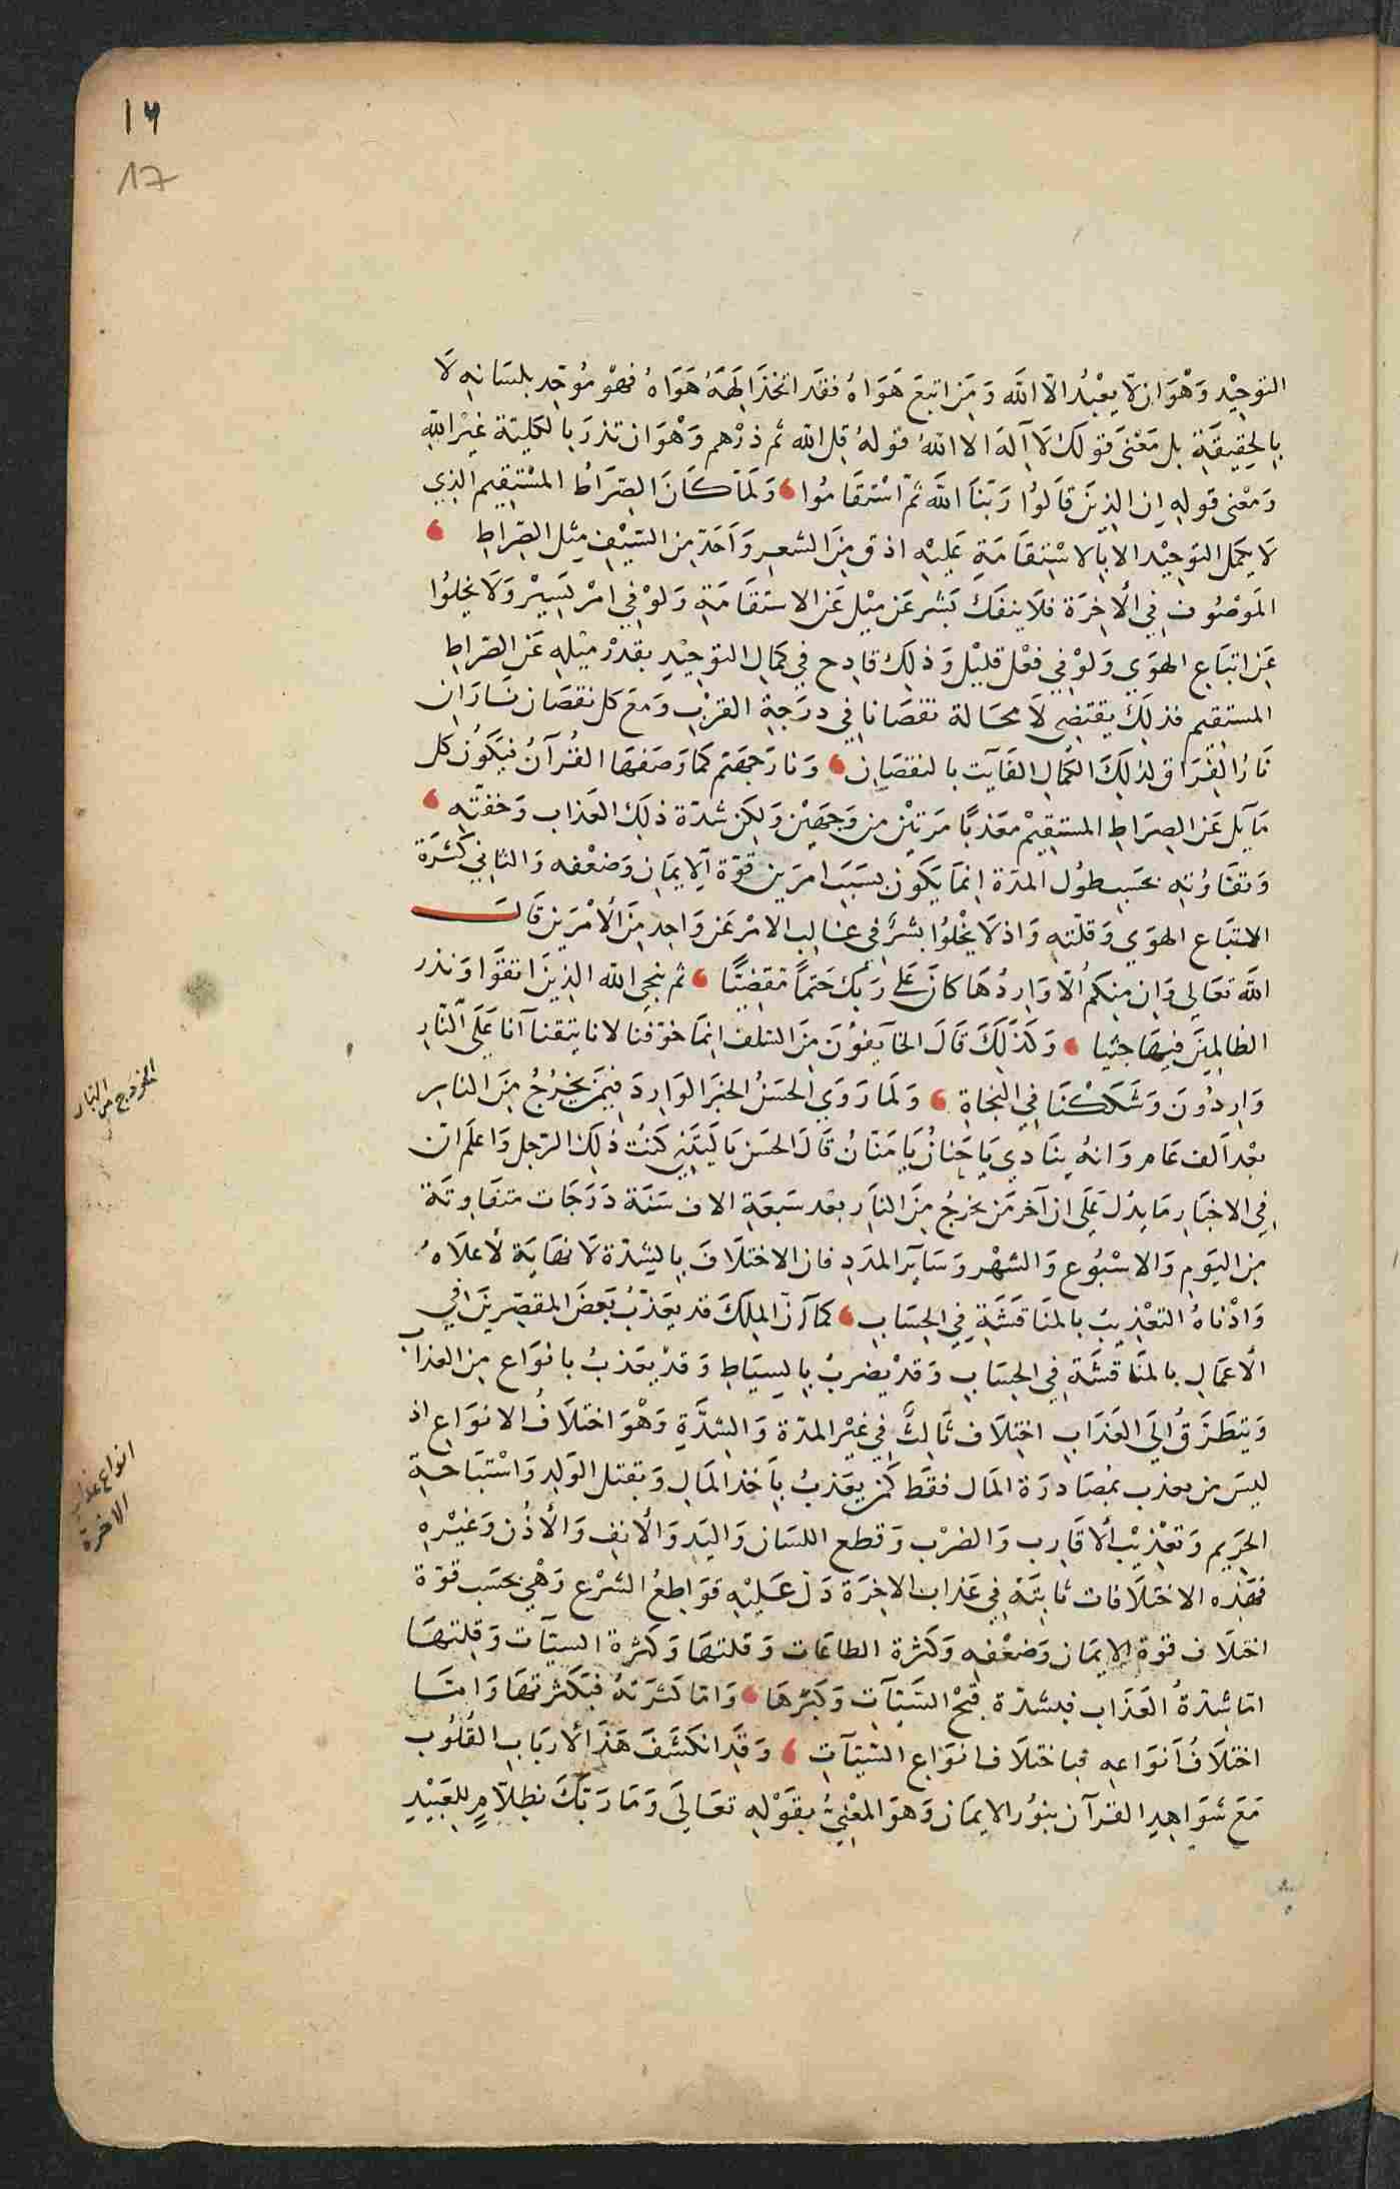 ١٦
17
التوحِيْد وَهْوَ ان لّا يعْبُد الّا الله وَمَن اتبعَ هَوَاهُ فقَد اتخذَ اِلهَهُ هَوَاهُ فهْو مُوَحّد بلسَانهِ لَا
بِالحَقِيقَةِ بل مَعْنىَ قولكَ لَا آِلهَ الا اللهُ قولهُ قل الله ثم ذرْهم وَهْوَ ان تذرَ بالكليّة غيْر اللهِ
وَمعْنى قولهِ اِن الذينَ قاَلوُا رَبّنَا الله ثمّ اسْتَقَامُوا، وَلمّا كَانَ الصِّرَاطُ المسْتقِيم الذِي
لَا يكمل التوحِيْد الا بالاسْتِقاَمَةِ عَليْهِ ادَق مِنَ الشعرِ وَاَحَدّ مِن السّيْفِ مِثل الصّراطِ ،
المَوصُوف فِي الْاخِرَة فلَا ينفكَ بَشرٌ عَن ميْل عَن الاستقَامَةِ وَلوْ فِي امْر يَسِيْر وَلَا يخلُوا
عَن اتبَاع الهوَي وَلوْ فِي فعْل قليْل وَذلِكَ قادِح فِي كمَال التوحِيْد بقدرْ ميْلهِ عَن الصّراطِ
المستقيم فذلِكَ يقتضِى لَا محَالة نقصَانا فِي درَجةِ القرْبِ وَمَعَ كل نقصَان نَارَان
نَارُ الفِرَاق لِذلِكَ الكمَال الفَآيت بالنقصَانِ ، وَنار جهَنم كمَا وَصَفهَا القُرآنُ فيَكوُن كل
مَآيل عَن الصِرَاطِ المستقِيْم معَذبًا مَرتيْن مِن وَجهَيْن وَلكِن شدّة ذلِكَ العَذاب وَخفتهِ ،
وَتفَاوُتهِ بحَسَبِ طوُل المدّة اِنمَا يَكوُن بسَبَبَ امرَين قوّة اَلِايمَان وَضعْفه وَالثانِي كثرَة
الاتبَاع الهوَي وَقلتهِ وَاذ لَا يخْلوُا بشرٌ فِي غالِب الامْر عَن وَاحِد مِنَ الْامْرَين قَالَ
الله تعَالي وَاِن مِنكم الّا وَارِدُهَا كانَ عَلى رَبكَ حَتماً مَقضِيًّا ، ثم ننجي الله الذِينَ اتقوَا وَنذر
الظالِمِيَن فيهَا جثيا ، وَكذلِكَ قَالَ الخآيفوُنَ مِنَ السّلف اِنمَا خوْفنا لانا يتقنا آنا عَلَى النّارِ
وَارِدُونَ وَشَكَكْنَا فِي النجَاةِ ، وَلمَا رَوَي الحسَنُ الخبَر الوَارِدَ فِيمَن يخرُجُ مِنَ النار
بعْد اَلف عَام وَانهُ ينَادي يَا حَنانُ يَا مَنّانُ قَالَ الحسَن يَا ليَتنِي كنتُ ذلِكَ الرّجل وَاعلم انّ
فِي الاخبَارِ مَا يدُل عَلَى ان آخر مَن يخرجُ مِنَ النّارِ بعْد سَبعَةِ الاف سَنَة دَرَجَات متفاوِتَة
مِن اليَوم وَالاسْبُوع وَالشهْر وَسَآير المدَدِ فان الاختلَافَ بِالشدّة لَا نهايَة لأعلَاهُ
وَادْناهُ التعْذِيبُ بالمنَاقشَةِ فِي الحِسَاب ، كمَا اَنّ الملِكَ قد يعَذبُ بَعضَ المقصّرينَ فِي
الْاعمَالِ بالمنَاقشَةِ فِي الحِسَابِ وَقدْ يضربُ بِالسيَاطِ وَقدْ يعَذبُ بانوَاع مِن العذابِ
وَيتطَرّقُ اِلَي العَذَابِ اختِلَاف ثَالِثٌ فِي غيْر المدّة وَالشدَّةِ وَهْوَ اختلَافُ الانوَاع اذ
ليسَ مَن يعذب بمُصَادرَة المَال فقَط كمَن يعَذبُ بِاَخذ المَالِ وَبقتل الوَلِد وَاسْتبَاحةِ
الحَرِيم وَتعْذِيْب الْاقَارِب وَالضرْب وَقطع اللسَان وَاليَد وَالْانفِ وَالْاذُن وَغيْرهِ
فهَذِه الاختلَافات ثابتَة فِي عَذاب الاخِرَة دَلّ عَليْهِ قوَاطِعُ الشرْع وَهْيَ بحسَب قوّة
اختلَاف قوّة الِايمَان وَضعْفهِ وَكثرة الطاعَات وَقلتهَا وَكثرة السيّآت وَقِلتهَا
امّا شِدّةُ العَذَاب فبشدّة قبْحْ السَيّئآت وَكبْرهَا ، وَامّا كثرَتهُ فبَكثرتهَا وَامّا
اختلَافُ اَنوَاعهِ فباختلَاف انوَاع السّيّآتِ ، وَقدِ انكشَفَ هَذَا لْارْبَابِ القُلوُب
مَعَ شوَاهِدِ القرآن بنوُر الايمَان وَهوَ المعْنِيُّ بقَوْلهِ تعَالَي وَمَا رَبُّكَ بظَلّامٍ لِلعَبيْدِ
الخروج من النار
انواع عذاب
الاخرة